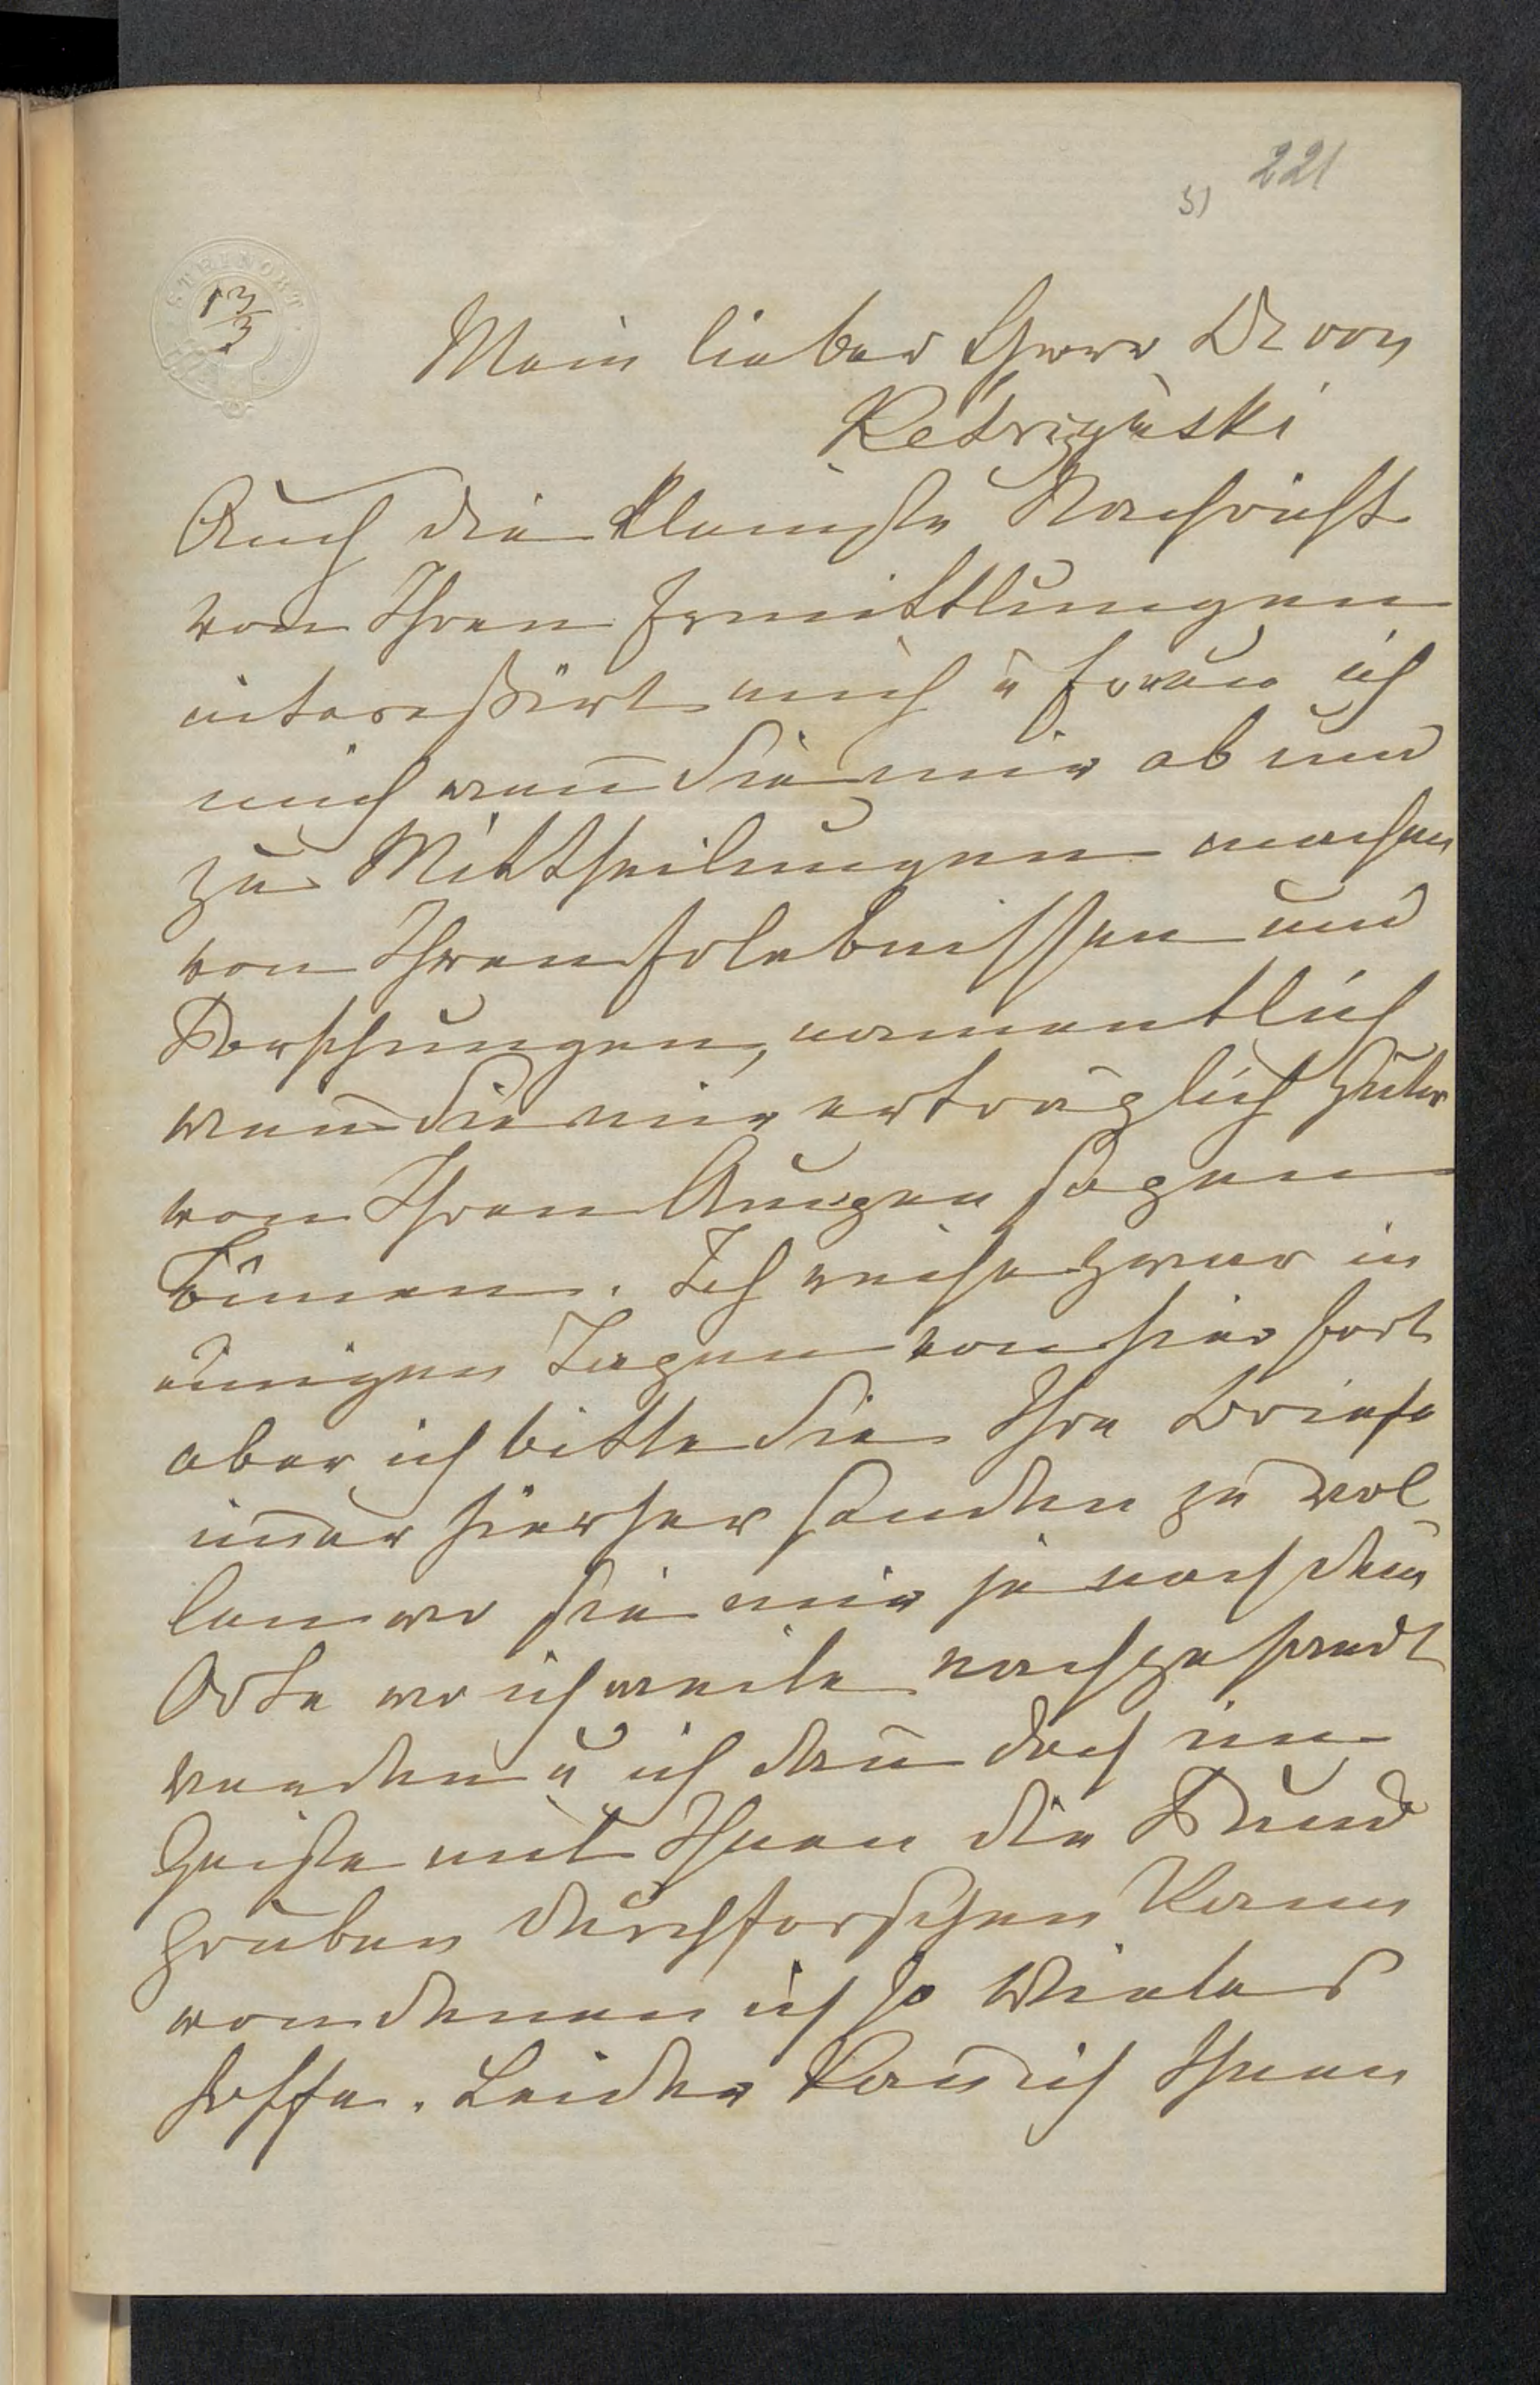 221
5)
STEINORT
13/3
Mein lieber Herr Dr von
Ketrizynski
Auch die kleinste Nachricht
von Ihren Ermittlungen
interessirt mich u freue ich
mich wen̄ Sie mir ab und
zu Mittheilungen machen
von Ihren Erlebnissen und
Forschungen, namentlich
wen̄ Sie mir erträglich Gutes
von Ihren Augen sagen
können. Ich reise zwar in
einigen Tagen von hier fort
aber ich bitte Sie Ihre Briefe
im̄er hierher senden zu wol-
len wo sie mir je nach dem
Orte wo ich weile nachgesandt
werden u ich dan̄ doch im
Geiste mit Ihnen die Fund
gruben durchforschen kann
von denen ich so Vieles
hoffe. Leider kan̄ ich Ihnen